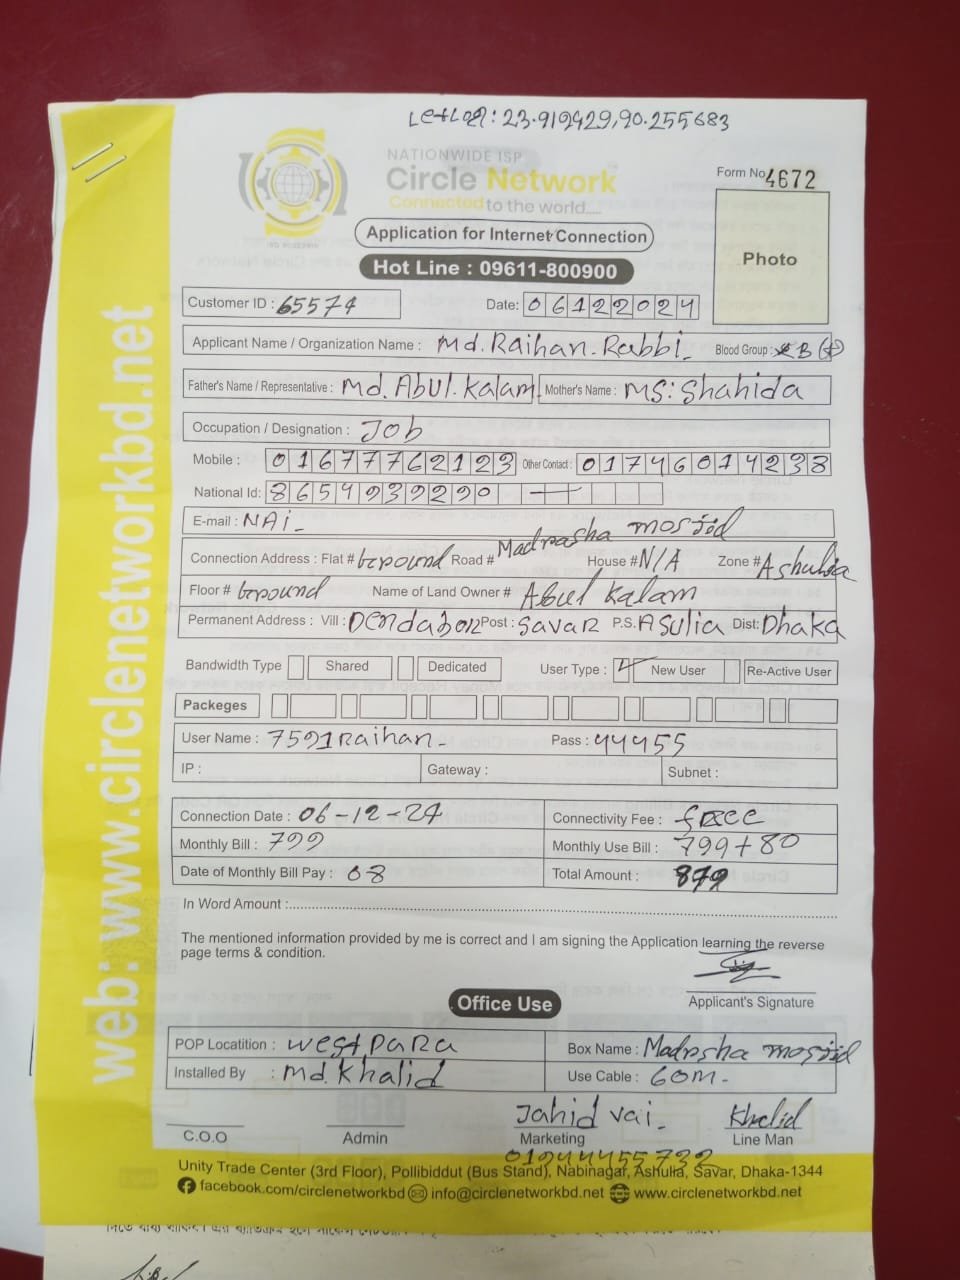 Let Lon: 23.919429,90.255683
NATIONWIDE ISP
Circle Network
Connected to the world.....
Form No 4672
Photo
Application for Internet Connection
Hot Line : 09611-800900
Customer ID : 65574 Date: 06122024
Applicant Name / Organization Name : Md. Raihan. Rabbi_ Blood Group : B (+)
Father's Name / Representative : Md. Abul. Kalam Mother's Name : MS: Shahida
Occupation / Designation : Job
Mobile : 01677762123 Other Contact : 01746014238
National Id: 8654939290
E-mail : NAi_
Connection Address : Flat # Ground Road # Madrasha mosjid House # N/A Zone # Ashulia
Floor # Ground Name of Land Owner # Abul Kalam
Permanent Address : Vill : Dendabor Post : Savar P.S. Asulia Dist: Dhaka
Bandwidth Type Shared Dedicated User Type : New User Re-Active User
Packeges
User Name : 7591Raihan_ Pass : 44455
IP : Gateway : Subnet :
Connection Date : 06-12-24 Connectivity Fee : free
Monthly Bill : 799 Monthly Use Bill : 799+80
Date of Monthly Bill Pay : 08 Total Amount : 879
In Word Amount :
The mentioned information provided by me is correct and I am signing the Application learning the reverse
page terms & condition.
Applicant's Signature
Office Use
POP Locatition : West para Box Name : Madrsha mosjid
Installed By : Md. Khalid Use Cable : 60M-
Jahid vai_ Khalid
C.O.O Admin Marketing Line Man
01944455732
Unity Trade Center (3rd Floor), Pollibiddut (Bus Stand), Nabinagar, Ashulia, Savar, Dhaka-1344
facebook.com/circlenetworkbd info@circlenetworkbd.net www.circlenetworkbd.net
web: www.circlenetworkbd.net